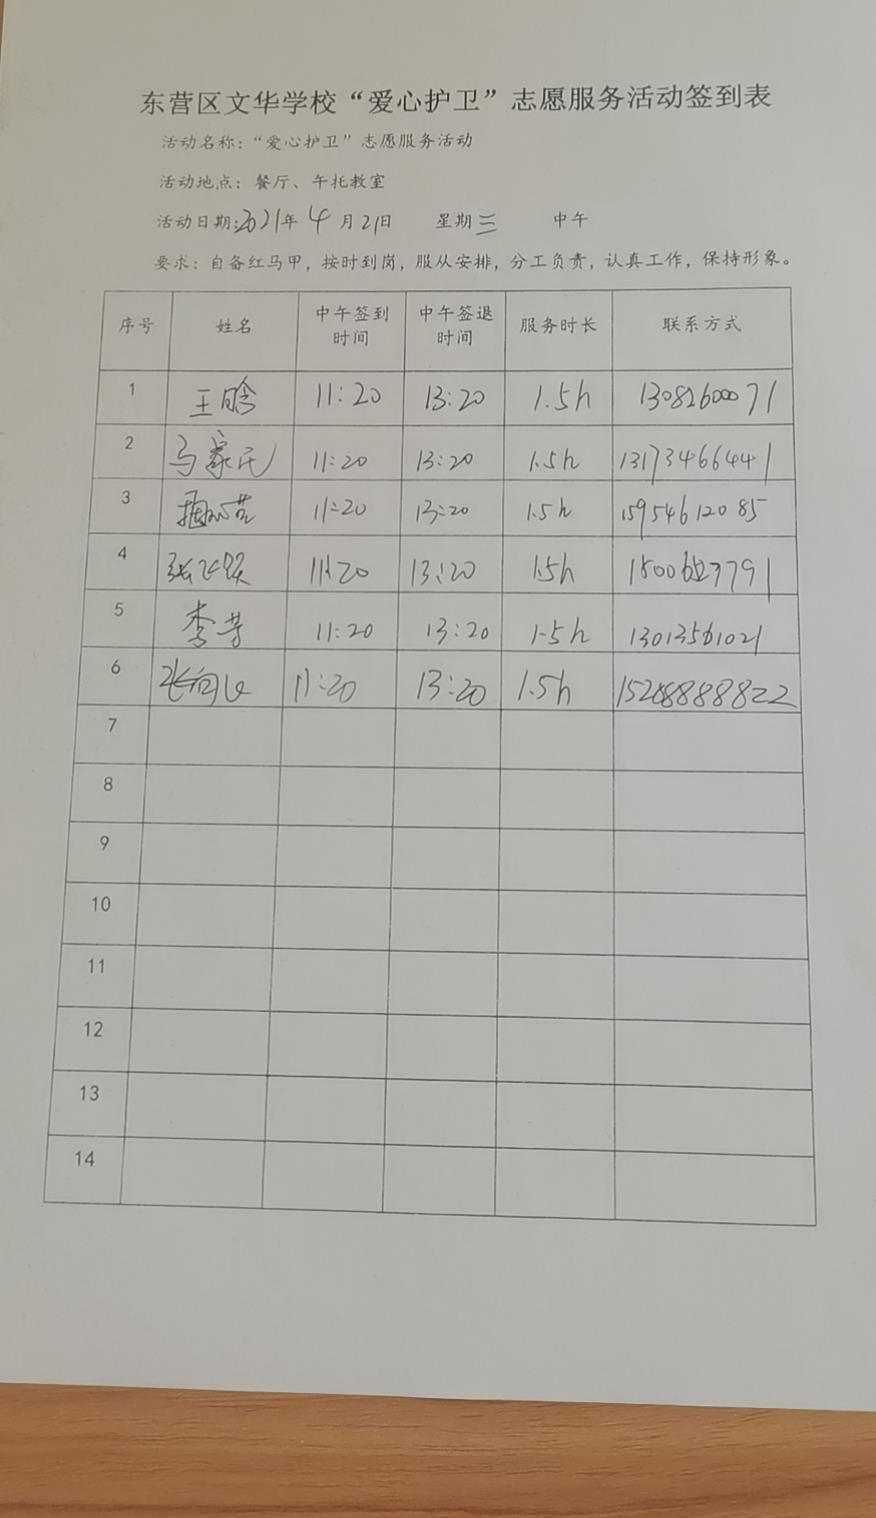 东营区文华学校“爱心护卫”志愿服务活动签到表
活动名称：“爱心护卫”志愿服务活动
活动地点：餐厅、午托教室
活动日期：2021年 4 月 21日 星期三 中午
要求：自备红马甲，按时到岗，服从安排，分工负责，认真工作，保持形象。
序号 姓名 中午签到时间 中午签退时间 服务时长 联系方式
1 王晗 11:20 13:20 1.5h 13082600071
2 马家民 11:20 13:20 1.5h 13173466441
3 11:20 13:20 1.5h 15954612085
4 张 11:20 13:20 1.5h
5 李芳 11:20 13:20 1.5h 13013561021
6 张向 11:20 13:20 1.5h
7
8
9
10
11
12
13
14